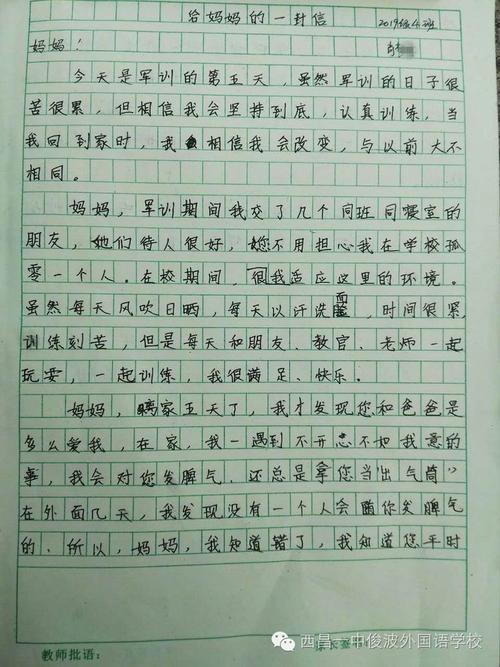 给妈妈的一封信
2019级4班
妈妈!
今天是军训的第五天,虽然军训的日子很
苦很累,但相信我会坚持到底,认真训练,当
我回到家时,我相信我会改变,与以前大不
相同。
妈妈,军训期间我交了几个同班同寝室的
朋友,她们待人很好,您不用担心我在学校孤
零一个人。在校期间,很我适应这里的环境。
虽然每天风吹日晒,每天以汗洗面,时间很紧,
训练刻苦,但是每天和朋友、教官、老师一起
玩安,一起训练,我很满足、快乐。
妈妈,离家五天了,我才发现您和爸爸是
多么爱我,在家,我一遇到不开心不如我意的
事,我会对您发脾气,还总是拿您当“出气筒”
在外面几天,我发现没有一个人会随你发脾气
的、所以,妈妈,我知道错了,我知道您平时
教师批语:
西昌一中俊波外国语学校